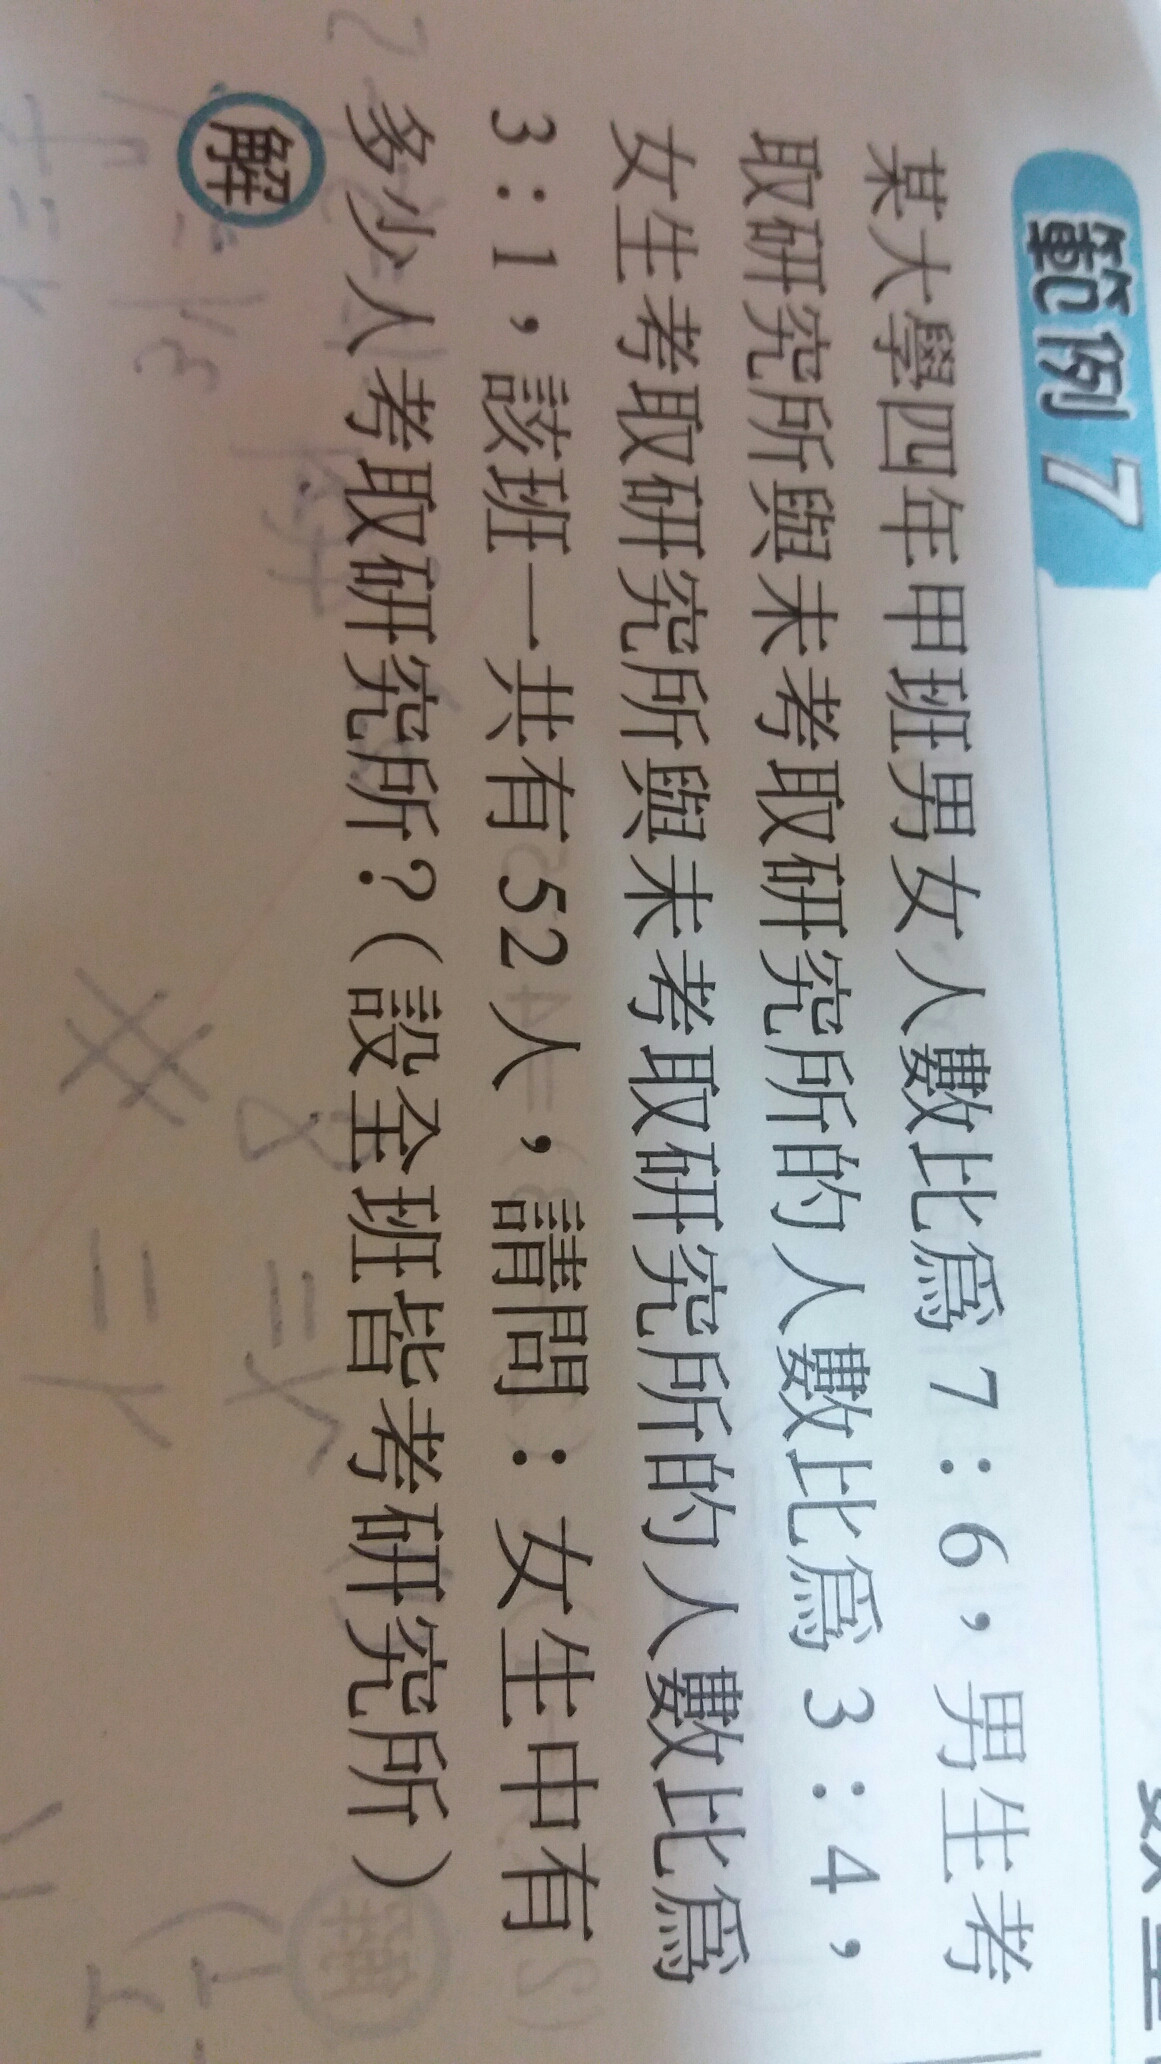 範例 7
某大學四年甲班男女人數比為 7：6，男生考
取研究所與未考取研究所的人數比為 3：4，
女生考取研究所與未考取研究所的人數比為
3：1，該班一共有 52 人，請問：女生中有
多少人考取研究所？（設全班皆考研究所）
解